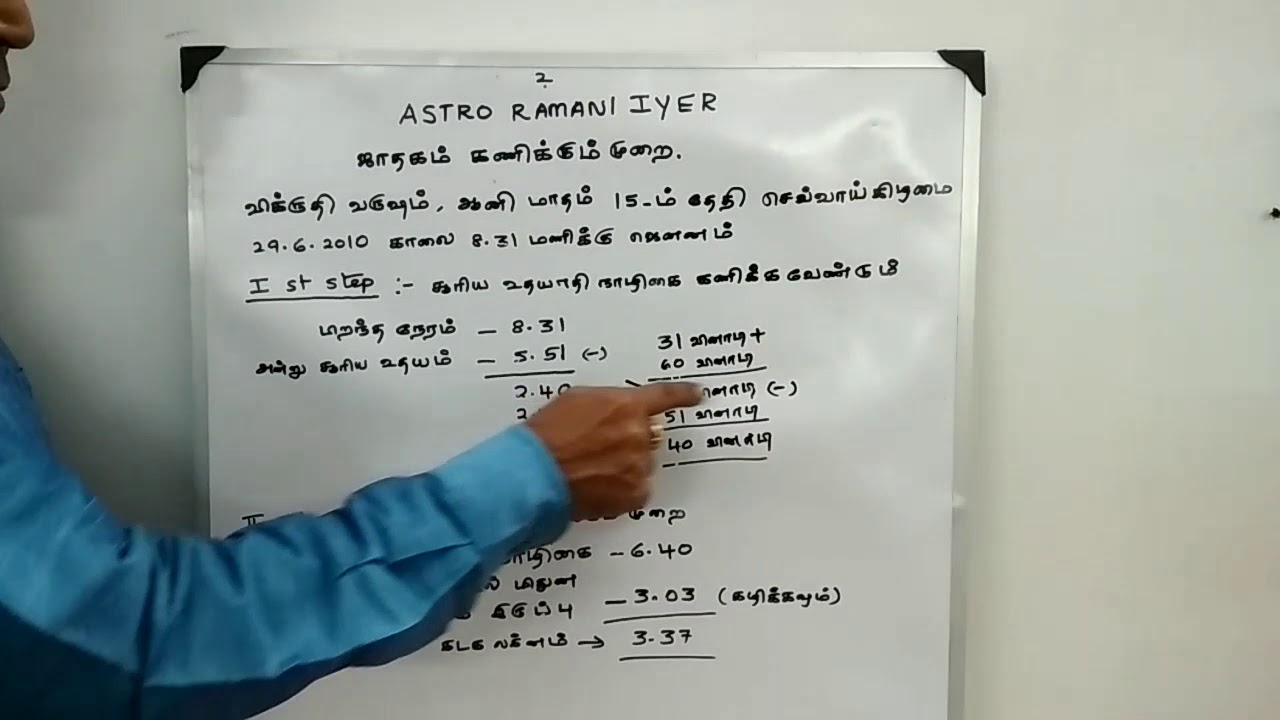 2
ASTRO RAMANI IYER
ஜாதகம் கணிக்கும் முறை.
விக்ருதி வருஷம், ஆனி மாதம் 15-ம் தேதி செவ்வாய்கிழமை
29.6.2010 காலை 8.31 மணிக்கு ஜெனனம்
I st step :- சூரிய உதயாதி நாழிகை கணிக்க வேண்டும்
பிறந்த நேரம் - 8.31
அன்று சூரிய உதயம் - 5.51 (-)
2.40
2.
31 வினாடி +
60 வினாடி
வினாடி (-)
51 வினாடி
40 வினாடி
II
முறை
நாழிகை - 6.40
மிதுன
இருப்பு - 3.03 (கழிக்கவும்)
கடக லக்னம் → 3.37